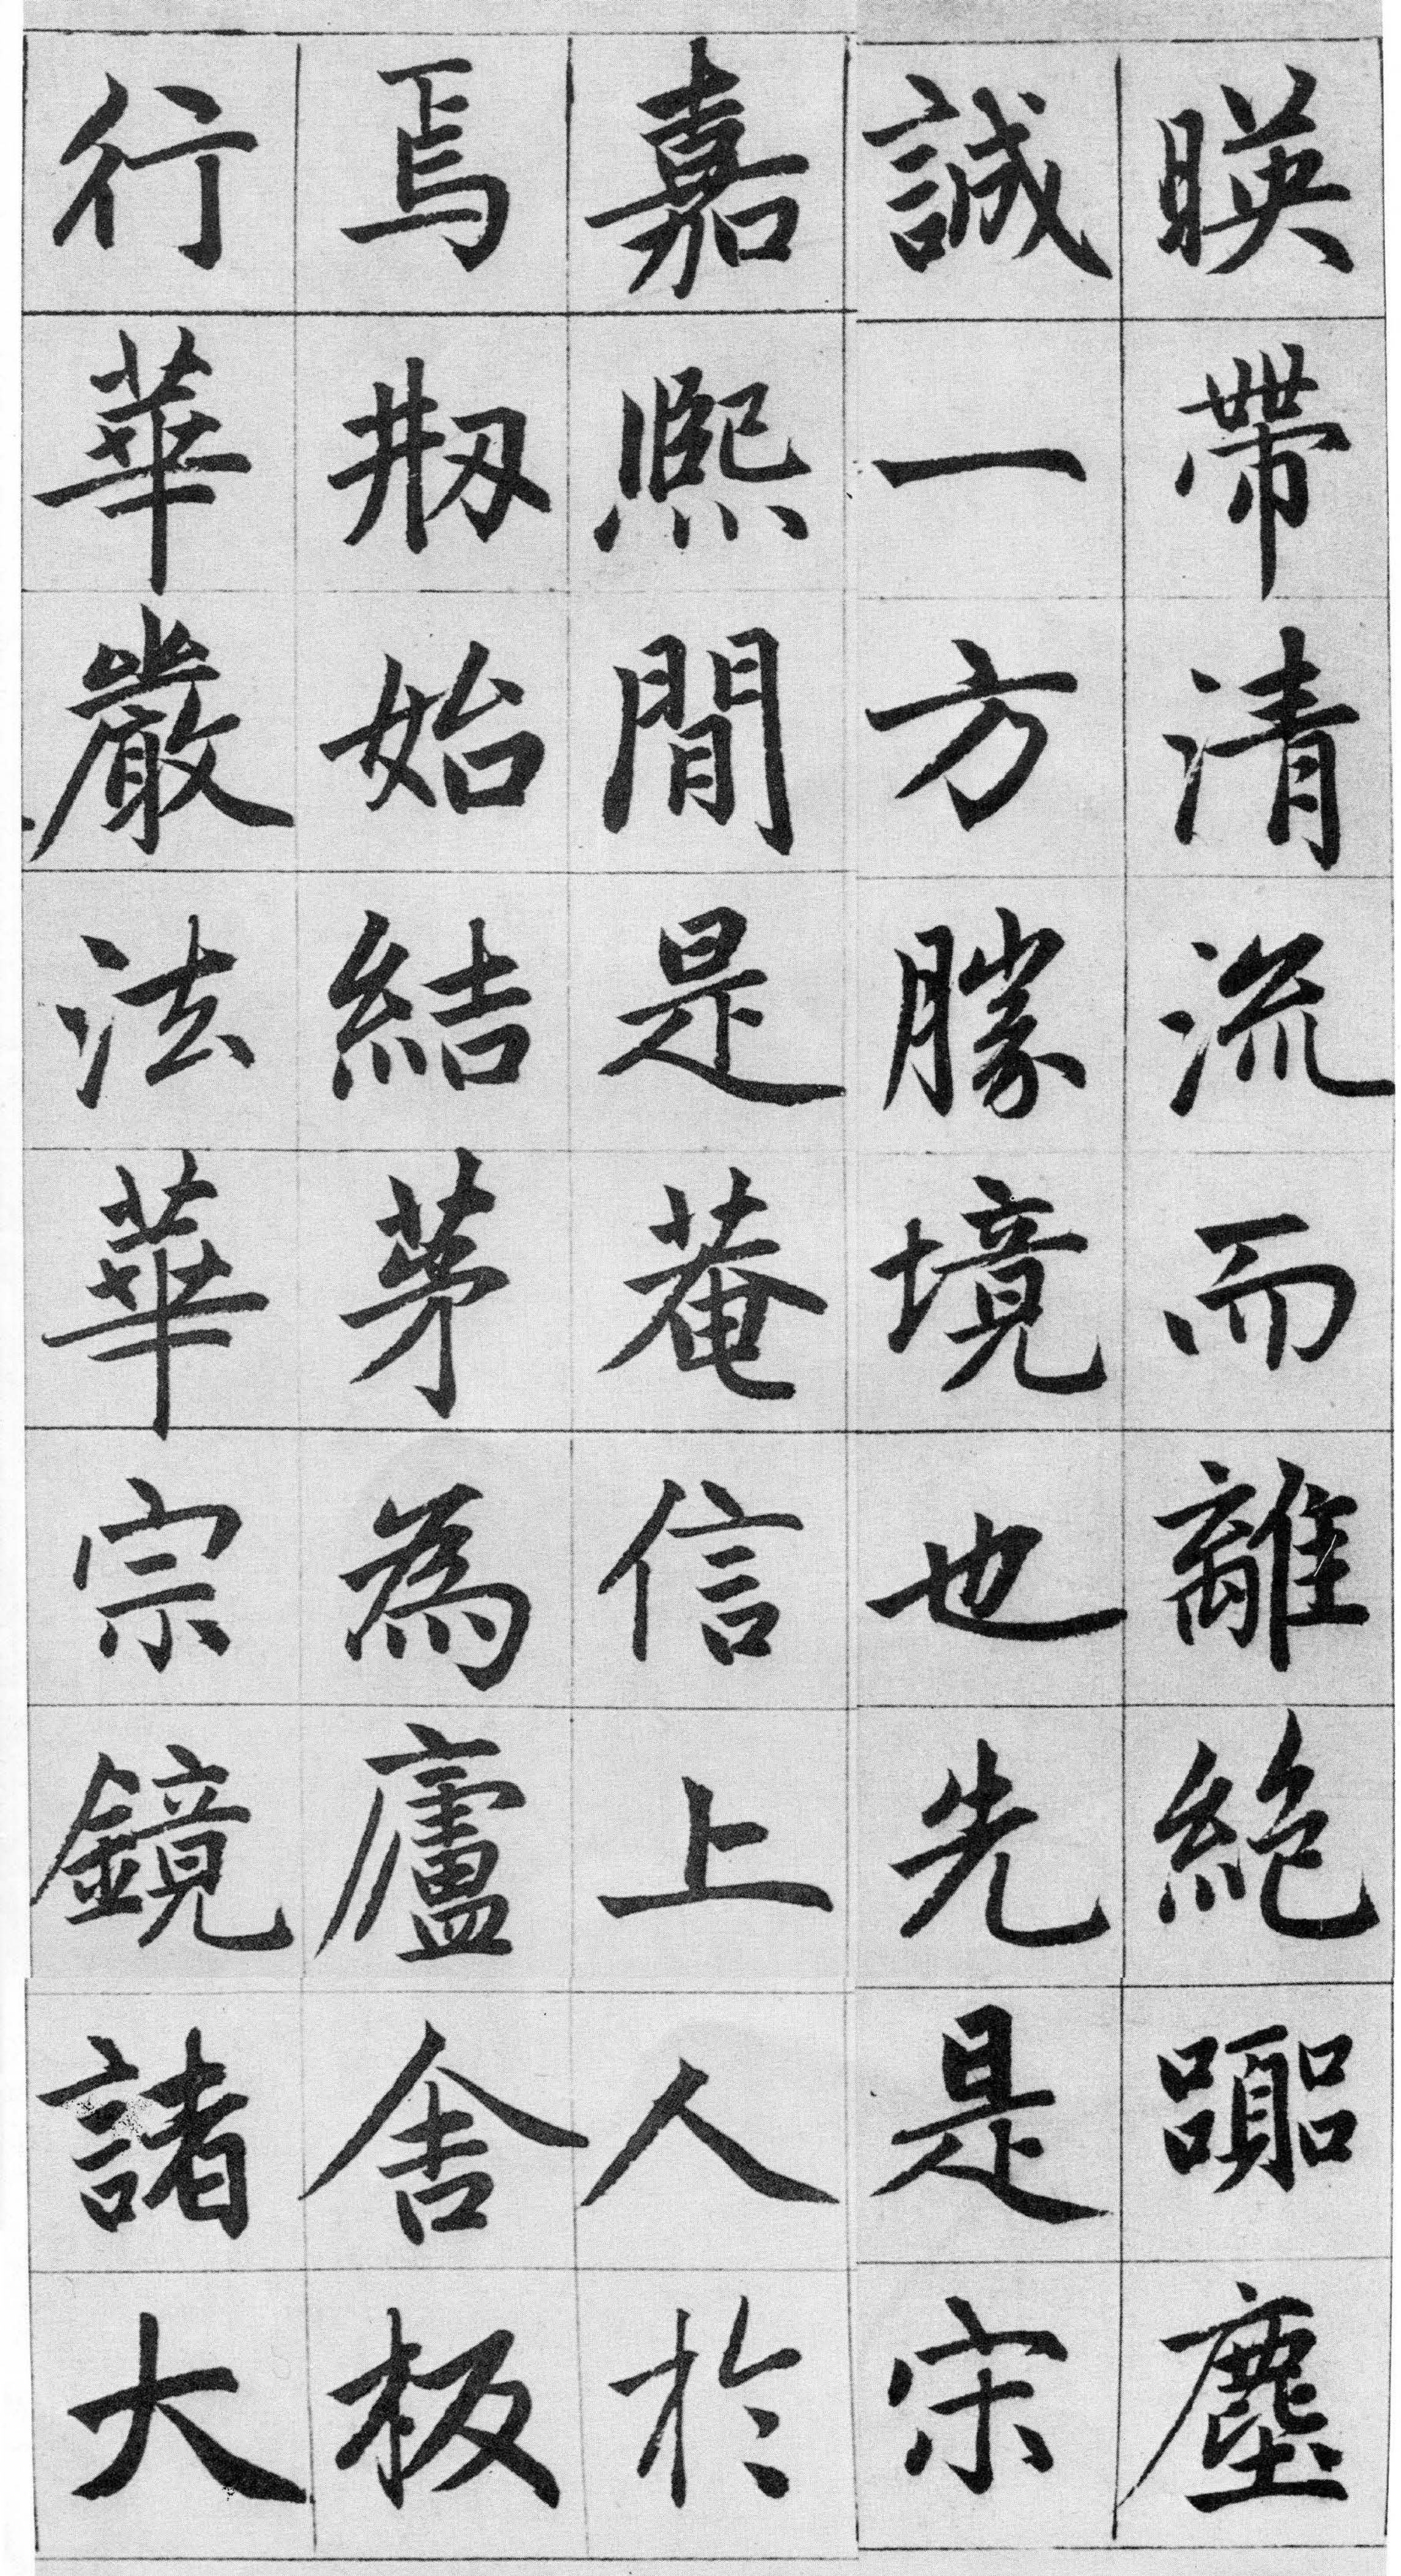 暎帶清流而離絕嚻塵
誠一方勝境也先是宋
嘉熙間是菴信上人於
焉刱始結茅為廬舍板
行華嚴法華宗鏡諸大